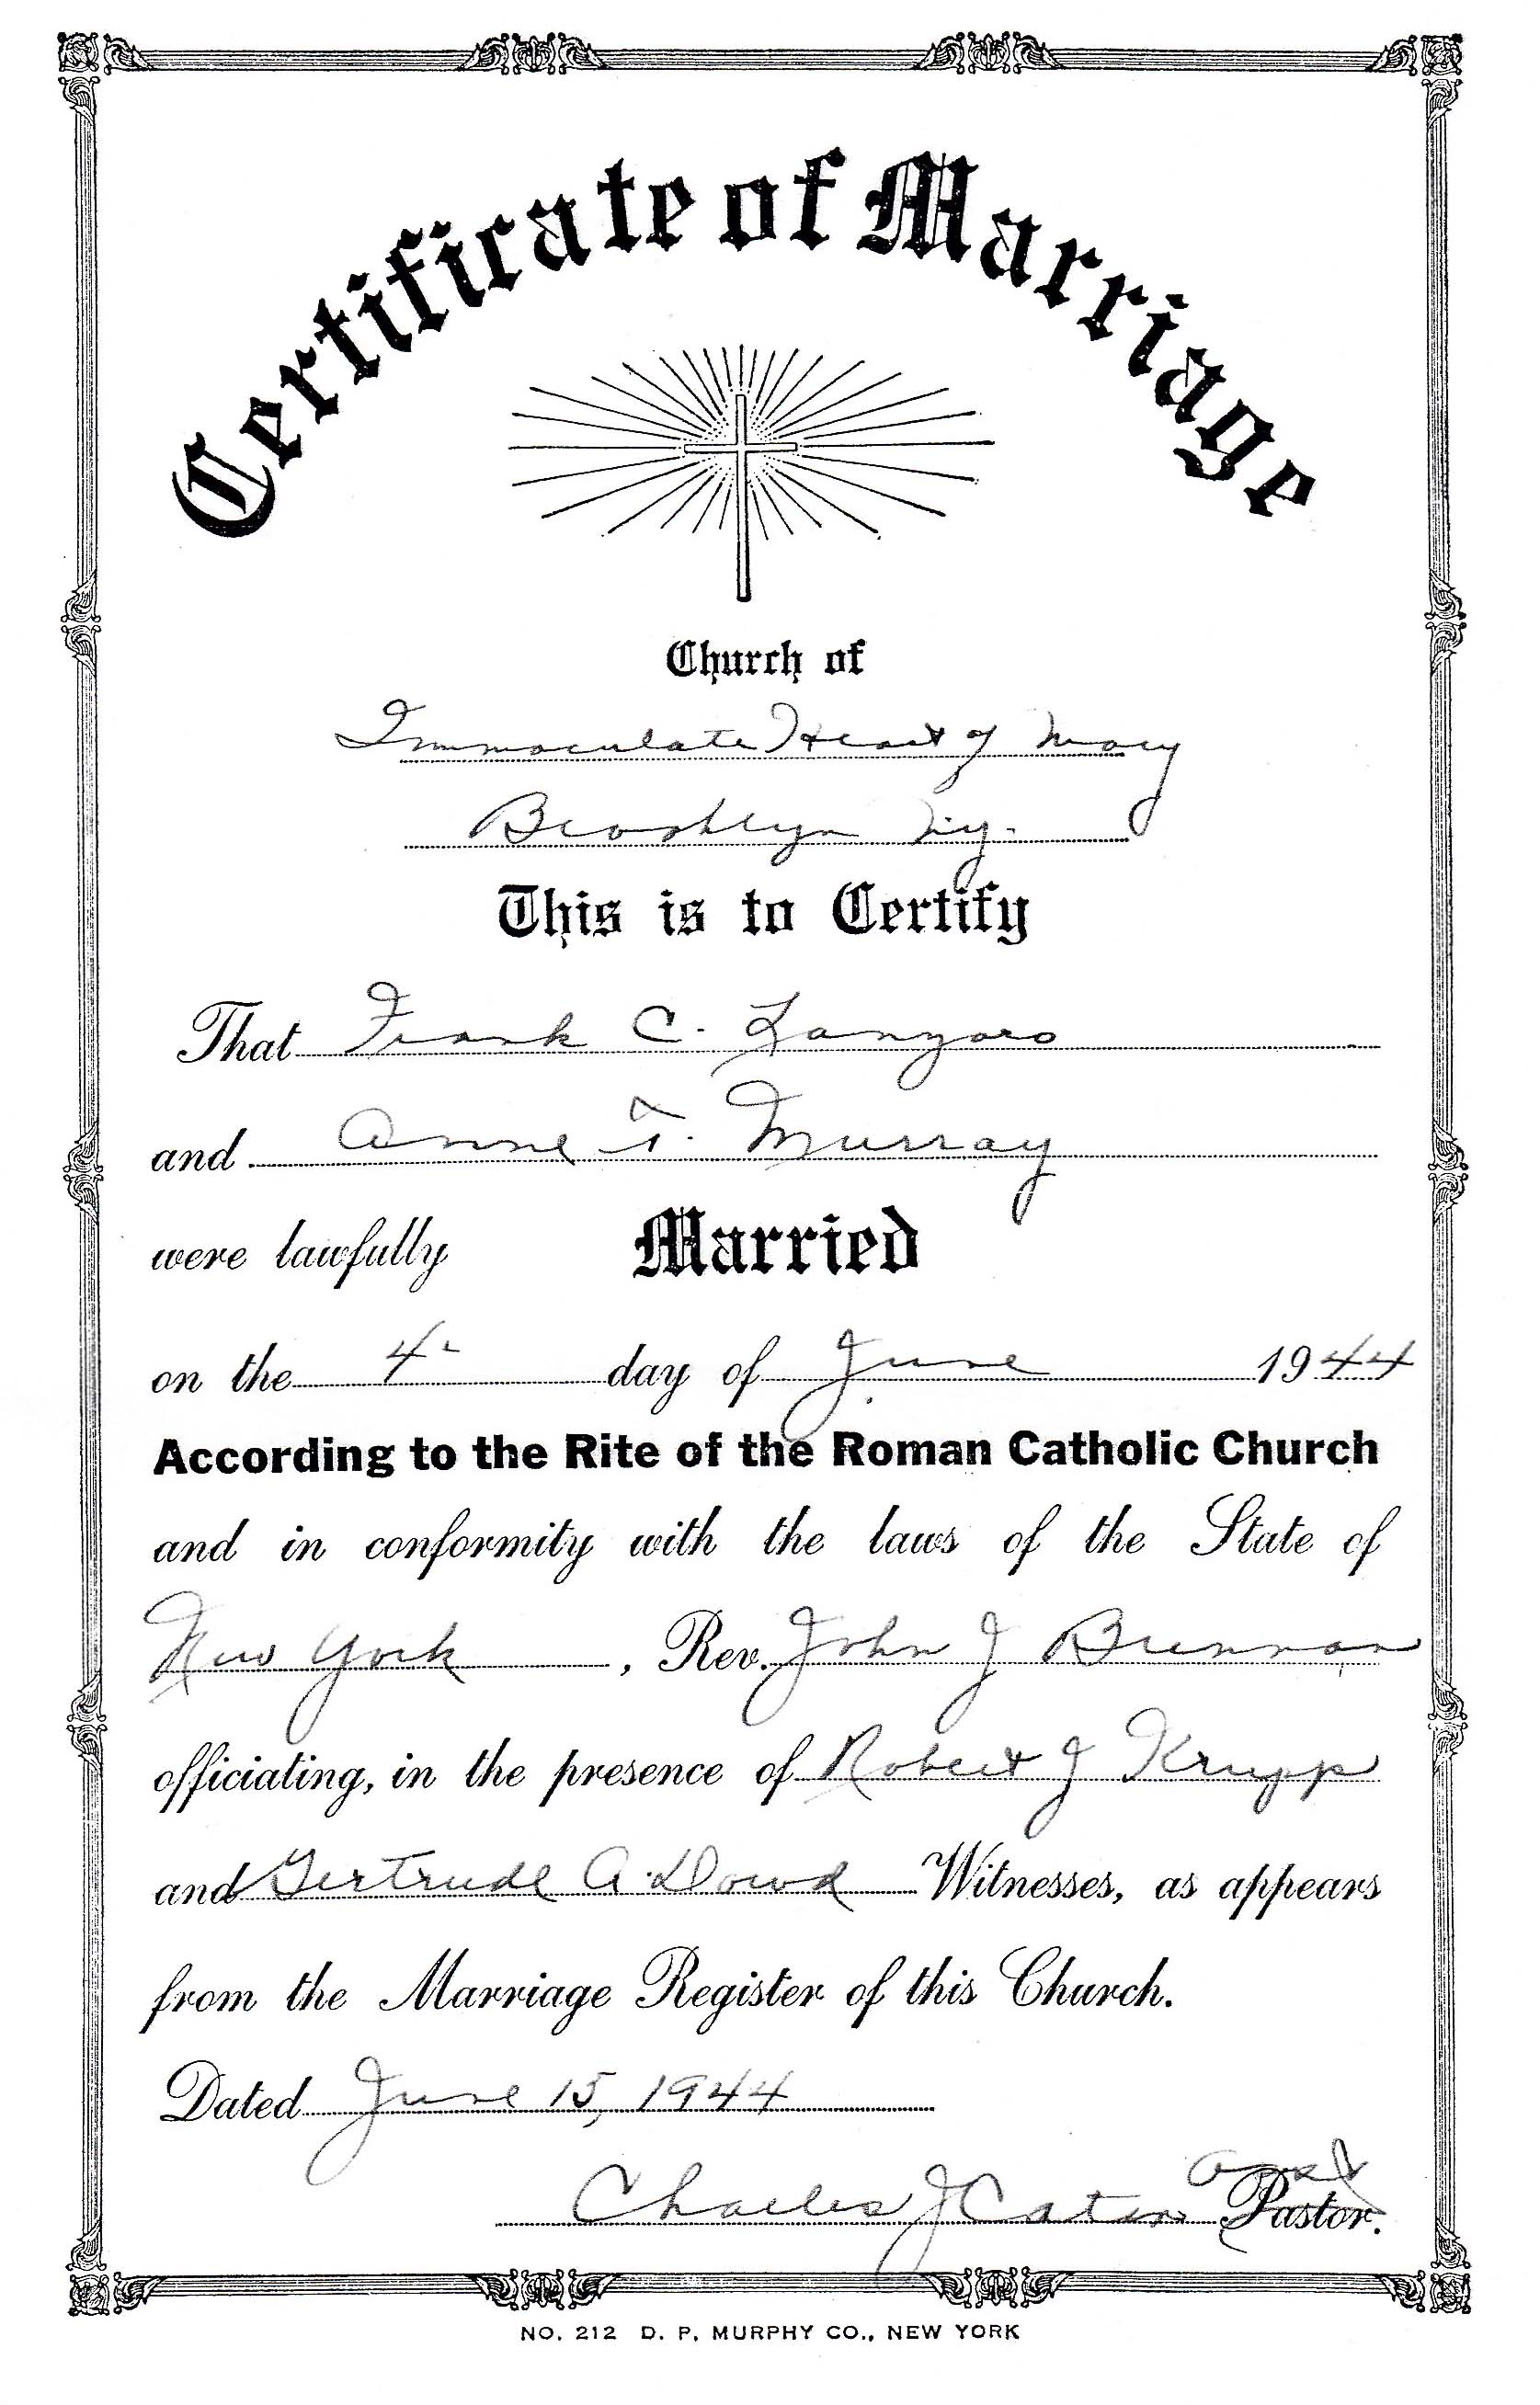 Certificate of Marriage
Church of
Immaculate Heart of Mary
Brooklyn N.Y.
This is to Certify
That Frank C. Lanzaro
and Anne T. Murray
were lawfully Married
on the 4 day of June 1944
According to the Rite of the Roman Catholic Church
and in conformity with the laws of the State of
New York, Rev. John J Brennan
officiating, in the presence of Robert J Krupp
and Gertrude A. Dowd Witnesses, as appears
from the Marriage Register of this Church.
Dated June 15, 1944
Charles J Pastor.
NO. 212 D. P. MURPHY CO., NEW YORK